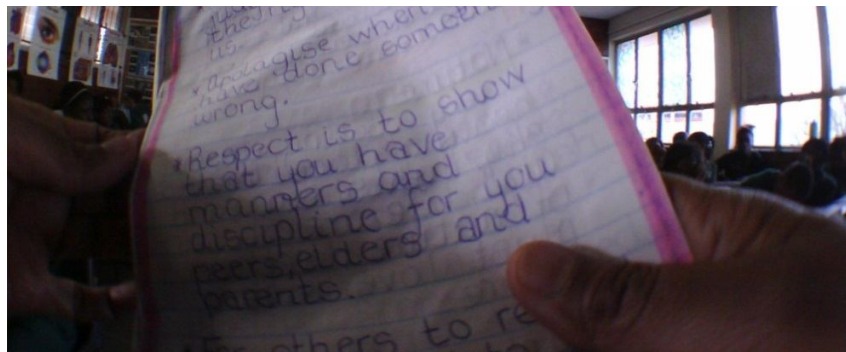 is.
* Apologise when
have done someth
wrong.
* Respect is to show
that you have
manners and
discipline for you
peers, elders and
parents.
* For others to re